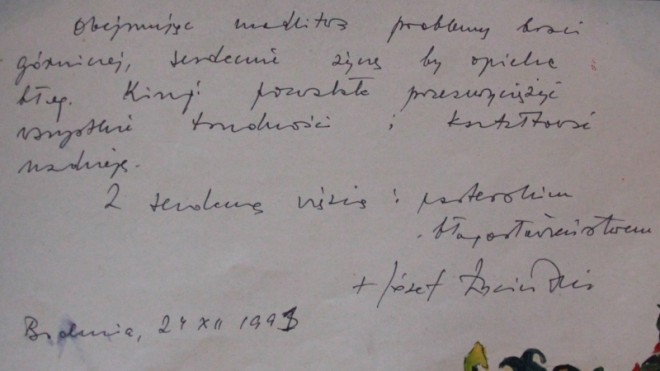 Obejmując modlitwą problemy braci
górniczej, serdecznie życzę by opieka
błog. Kingi pozwoliła przezwyciężyć
wszystkie trudności i kształtować
nadzieję.
Z serdeczną więzią i pasterskim
błogosławieństwem
+ Józef Życiński
Bochnia, 24 XII 1993